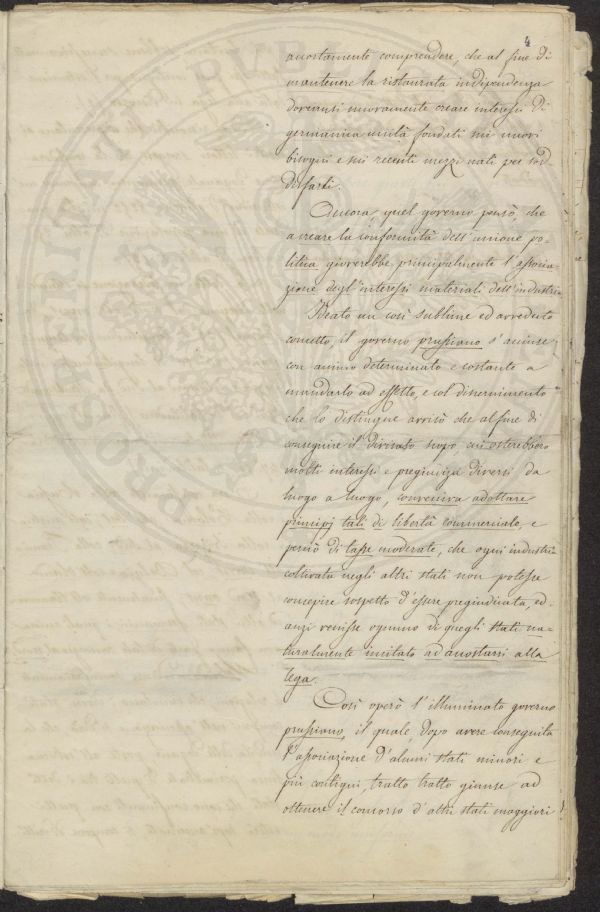 4
comprendere, che al fine di
mantenere la ristaurata indipendenza
dovevansi nuovamente creare interessi di
germanica unità fondati su nuovi
bisogni e su recenti mezzi nati per sod-
disfarli.
Ancora, quel governo pensò, che
a creare la conformità dell'unione po-
litica gioverebbe principalmente l'associa-
zione degl'interessi materiali dell'industria
Beato un così sublime ed avveduto
concetto, il governo prussiano s'accinse
con animo determinato e costante a
mandarlo ad effetto, e col discernimento
che lo distingue avvisò che al fine di
conseguire il divisato scopo, cui osterebbero
molti interessi e pregiudizi diversi da
luogo a luogo, conveniva adottare
principj tali di libertà commerciale, e
perciò di tasse moderate, che ogni industria
coltivata negli altri stati non potesse
concepire sospetto d'essere pregiudicata, ed
anzi venisse ognuno di quegli stati na-
turalmente invitato ad accostarsi alla
lega.
Così operò l'illuminato governo
prussiano, il quale, dopo avere conseguita
l'associazione d'alcuni stati minori e
più contigui, tratto tratto giunse ad
ottenere il concorso d'altri stati maggiori